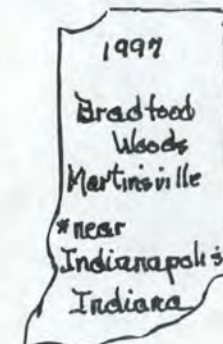 1997
Bradford
Woods
Martinsville
*near
Indianapolis
Indiana